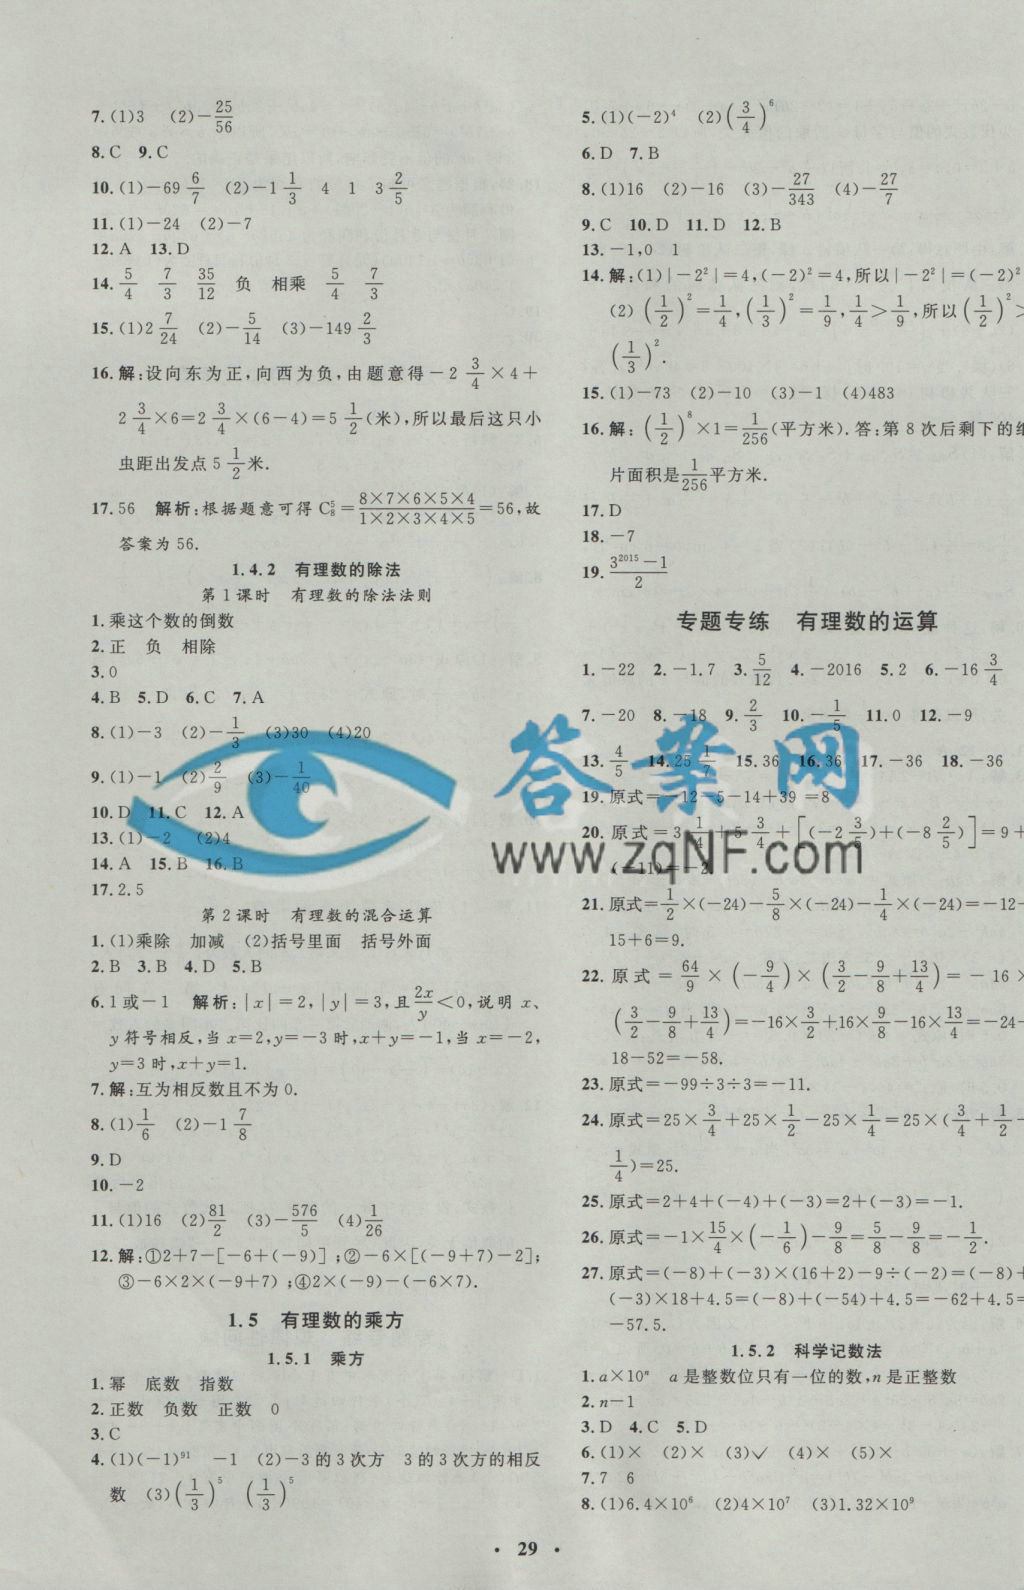 7.(1)3　(2)−25/56
8.C　9.C
10.(1)−69 6/7　(2)−1 1/3　4　1　3 2/5
11.(1)−24　(2)−7
12.A　13.D
14. 5/4　7/3　35/12　负　相乘　5/4　7/3
15.(1)2 7/24　(2)−5/14　(3)−149 2/3
16.解:设向东为正,向西为负,由题意得−2 3/4×4+
2 3/4×6=2 3/4×(6−4)=5 1/2(米),所以最后这只小
虫距出发点5 1/2米.
17.56　解析:根据题意可得C₈⁵=(8×7×6×5×4)/(1×2×3×4×5)=56,故
答案为56.
1.4.2　有理数的除法
第1课时　有理数的除法法则
1.乘这个数的倒数
2.正　负　相除
3.0
4.B　5.D　6.C　7.A
8.(1)−3　(2)−1/3　(3)30　(4)20
9.(1)−1　(2)2/9　(3)−1/40
10.D　11.C　12.A
13.(1)−2　(2)4
14.A　15.B　16.B
17.2.5
第2课时　有理数的混合运算
1.(1)乘除　加减　(2)括号里面　括号外面
2.B　3.B　4.D　5.B
6.1或−1　解析:|x|=2,|y|=3,且2x/y<0,说明x、
y符号相反,当x=2,y=−3时,x+y=−1,当x=−2,
y=3时,x+y=1.
7.解:互为相反数且不为0.
8.(1)1/6　(2)−1 7/8
9.D
10.−2
11.(1)16　(2)81/2　(3)−576/5　(4)1/26
12.解:①2+7−[−6+(−9)];②−6×[(−9+7)−2];
③−6×2×(−9+7);④2×(−9)−(−6×7).
1.5　有理数的乘方
1.5.1　乘方
1.幂　底数　指数
2.正数　负数　正数　0
3.C
4.(1)(−1)⁹¹　−1　(2)−3的3次方　3的3次方的相反
数　(3)(1/3)⁵　(1/3)⁵
5.(1)(−2)⁴　(2)(3/4)⁶
6.D　7.B
8.(1)16　(2)−16　(3)−27/343　(4)−27/7
9.C　10.D　11.D　12.B
13.−1,0　1
14.解:(1)|−2²|=4,(−2)²=4,所以|−2²|=(−2)²
(2)(1/2)²=1/4,(1/3)²=1/9,1/4>1/9,所以(1/2)²>
(1/3)².
15.(1)−73　(2)−10　(3)−1　(4)483
16.解:(1/2)⁸×1=1/256(平方米).答:第8次后剩下的纸
片面积是1/256平方米.
17.D
18.−7
19.(3²⁰¹⁵−1)/2
专题专练　有理数的运算
1.−22　2.−1.7　3.5/12　4.−2016　5.2　6.−16 3/4
7.−20　8.−18　9.2/3　10.−1/5　11.0　12.−9
13.4/5　14.25 1/7　15.36　16.36　17.−36　18.−36
19.原式=−12−5−14+39=8
20.原式=3 1/4+5 3/4+[(−2 3/5)+(−8 2/5)]=9+
(−11)=−2
21.原式=1/2×(−24)−5/8×(−24)−1/4×(−24)=−12−
15+6=9.
22.原式=64/9×(−9/4)×(3/2−9/8+13/4)=−16×
(3/2−9/8+13/4)=−16×3/2+16×9/8−16×13/4=−24−
18−52=−58.
23.原式=−99÷3÷3=−11.
24.原式=25×3/4+25×1/2−25×1/4=25×(3/4+1/2−
1/4)=25.
25.原式=2+4+(−4)+(−3)=2+(−3)=−1.
26.原式=−1×15/4×(−1/6)−9/8=5/8−9/8=−1/2.
27.原式=(−8)+(−3)×(16+2)−9÷(−2)=(−8)+
(−3)×18+4.5=(−8)+(−54)+4.5=−62+4.5=
−57.5.
1.5.2　科学记数法
1.a×10ⁿ　a是整数位只有一位的数,n是正整数
2.n−1
3.D　4.C　5.D
6.(1)×　(2)×　(3)✓　(4)×　(5)×
7.7　6
8.(1)6.4×10⁶　(2)4×10⁷　(3)1.32×10⁹
答案网
www.zqNF.com
· 29 ·